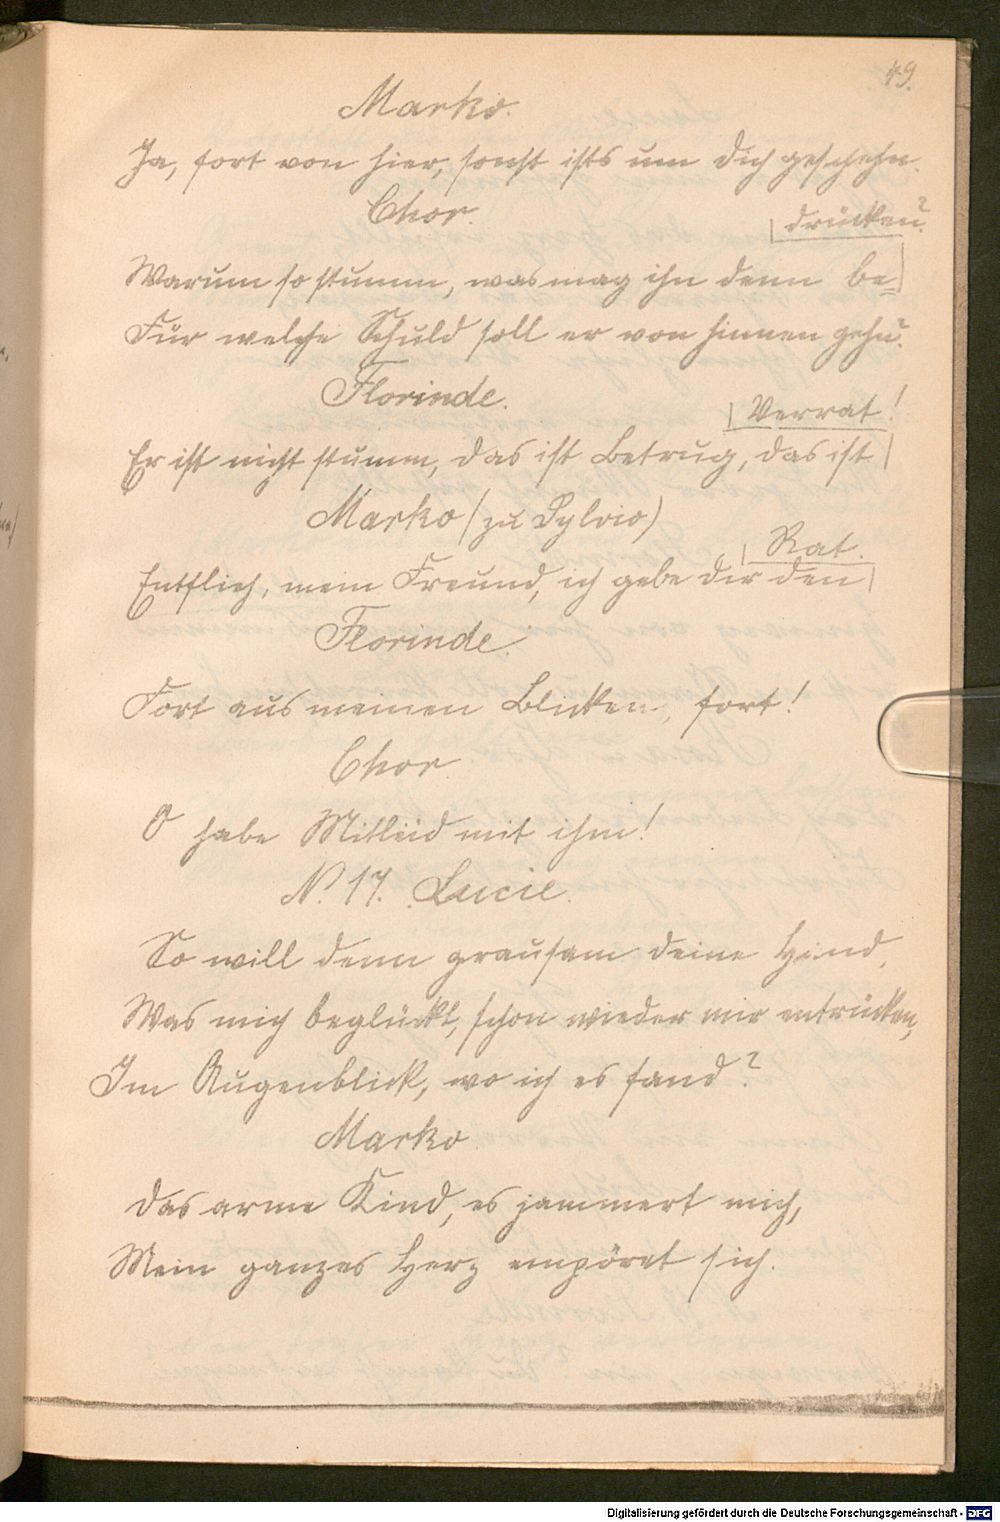 49.
Marko.
Ja, fort von hier, sonst ists um dich geschehn.
Chor.
Warum so stumm, was mag ihn denn be=
drücken?
Für welche Schuld soll er von hinnen gehn?
Florinde.
Er ist nicht stumm, das ist Betrug, das ist
Verrat!
Marko (zu Sylvio)
Entflieh, mein Freund, ich gebe dir den
Rat.
Florinde.
Fort aus meinen Blicken, fort!
Chor.
O habe Mitleid mit ihm!
N. 17. Lucie.
So will denn grausam deine Hand,
Was mich beglückt, schon wieder mir entrücken,
Im Augenblick, wo ich es fand?
Marko.
Das arme Kind, es jammert mich,
Mein ganzes Herz empöret sich.
Digitalisierung gefördert durch die Deutsche Forschungsgemeinschaft - DFG